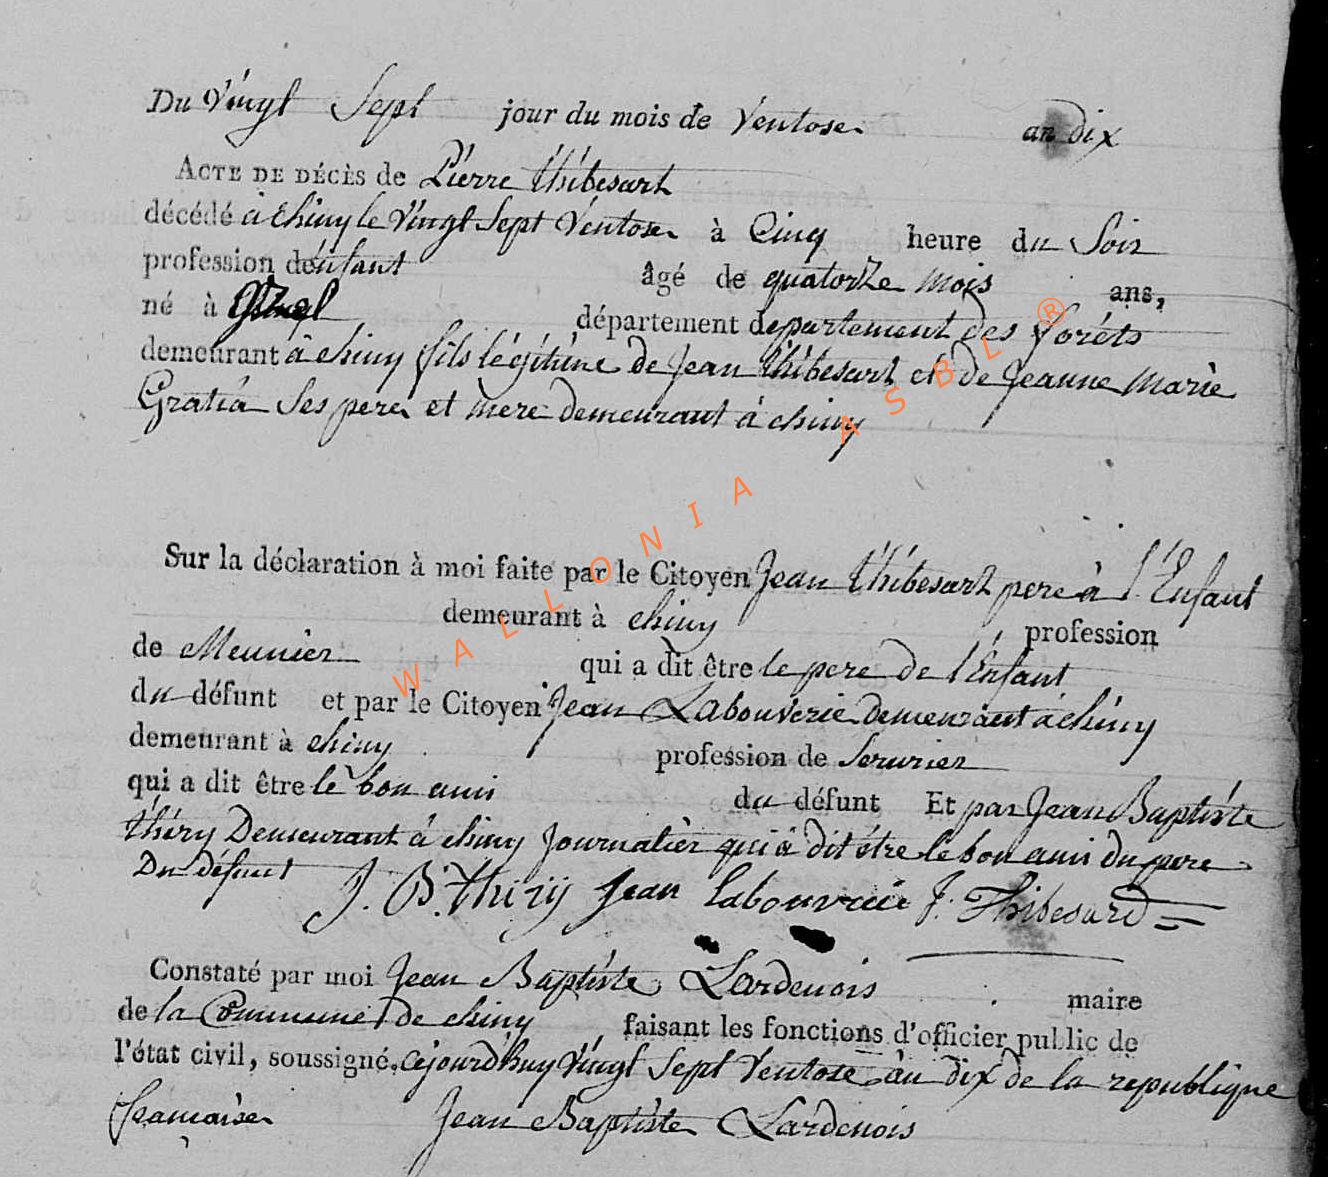 Du Vingt Sept jour du mois de Ventose an dix
ACTE DE DÉCÈS de Pierre thibesart
décédé à chiny le Vingt Sept Ventose à Cinq heure du Soir
profession d'enfant âgé de quatorze mois ans,
né à département departement des forêts
demeurant à chiny fils légitime de Jean thibesart et de Jeanne Marie
Gratia Ses pere et mere demeurant à chiny
Sur la déclaration à moi faite par le Citoyen Jean thibesart pere à l'Enfant
demeurant à chiny profession
de Meunier qui a dit être le pere de l'Enfant
du défunt et par le Citoyen Jean Labouverie demeurant à chiny
demeurant à chiny profession de Serurier
qui a dit être le bon ami du défunt Et par Jean Baptiste
thiry Demeurant à chiny Journalier qui a dit être le bon ami du pere
Du défunt J. B. thirij Jean labouvrie J. Thibesard
Constaté par moi Jean Baptiste Lardenois maire
de la Commune de chiny faisant les fonctions d'officier public de
l'état civil, soussigné. cejourd'huy Vingt Sept Ventose an dix de la republique
francaise Jean Baptiste Lardenois
WALLONIA ASBL ®